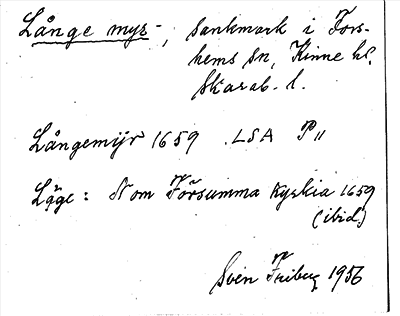 Långe myr-, sankmark i Fors-
hems sn, Kinne hd,
Skarab. l.
Långemijr 1659 . LSA P 11
Läge : N om Försumma Kyrkia 1659
(ibid.)
Sven Friberg 1956